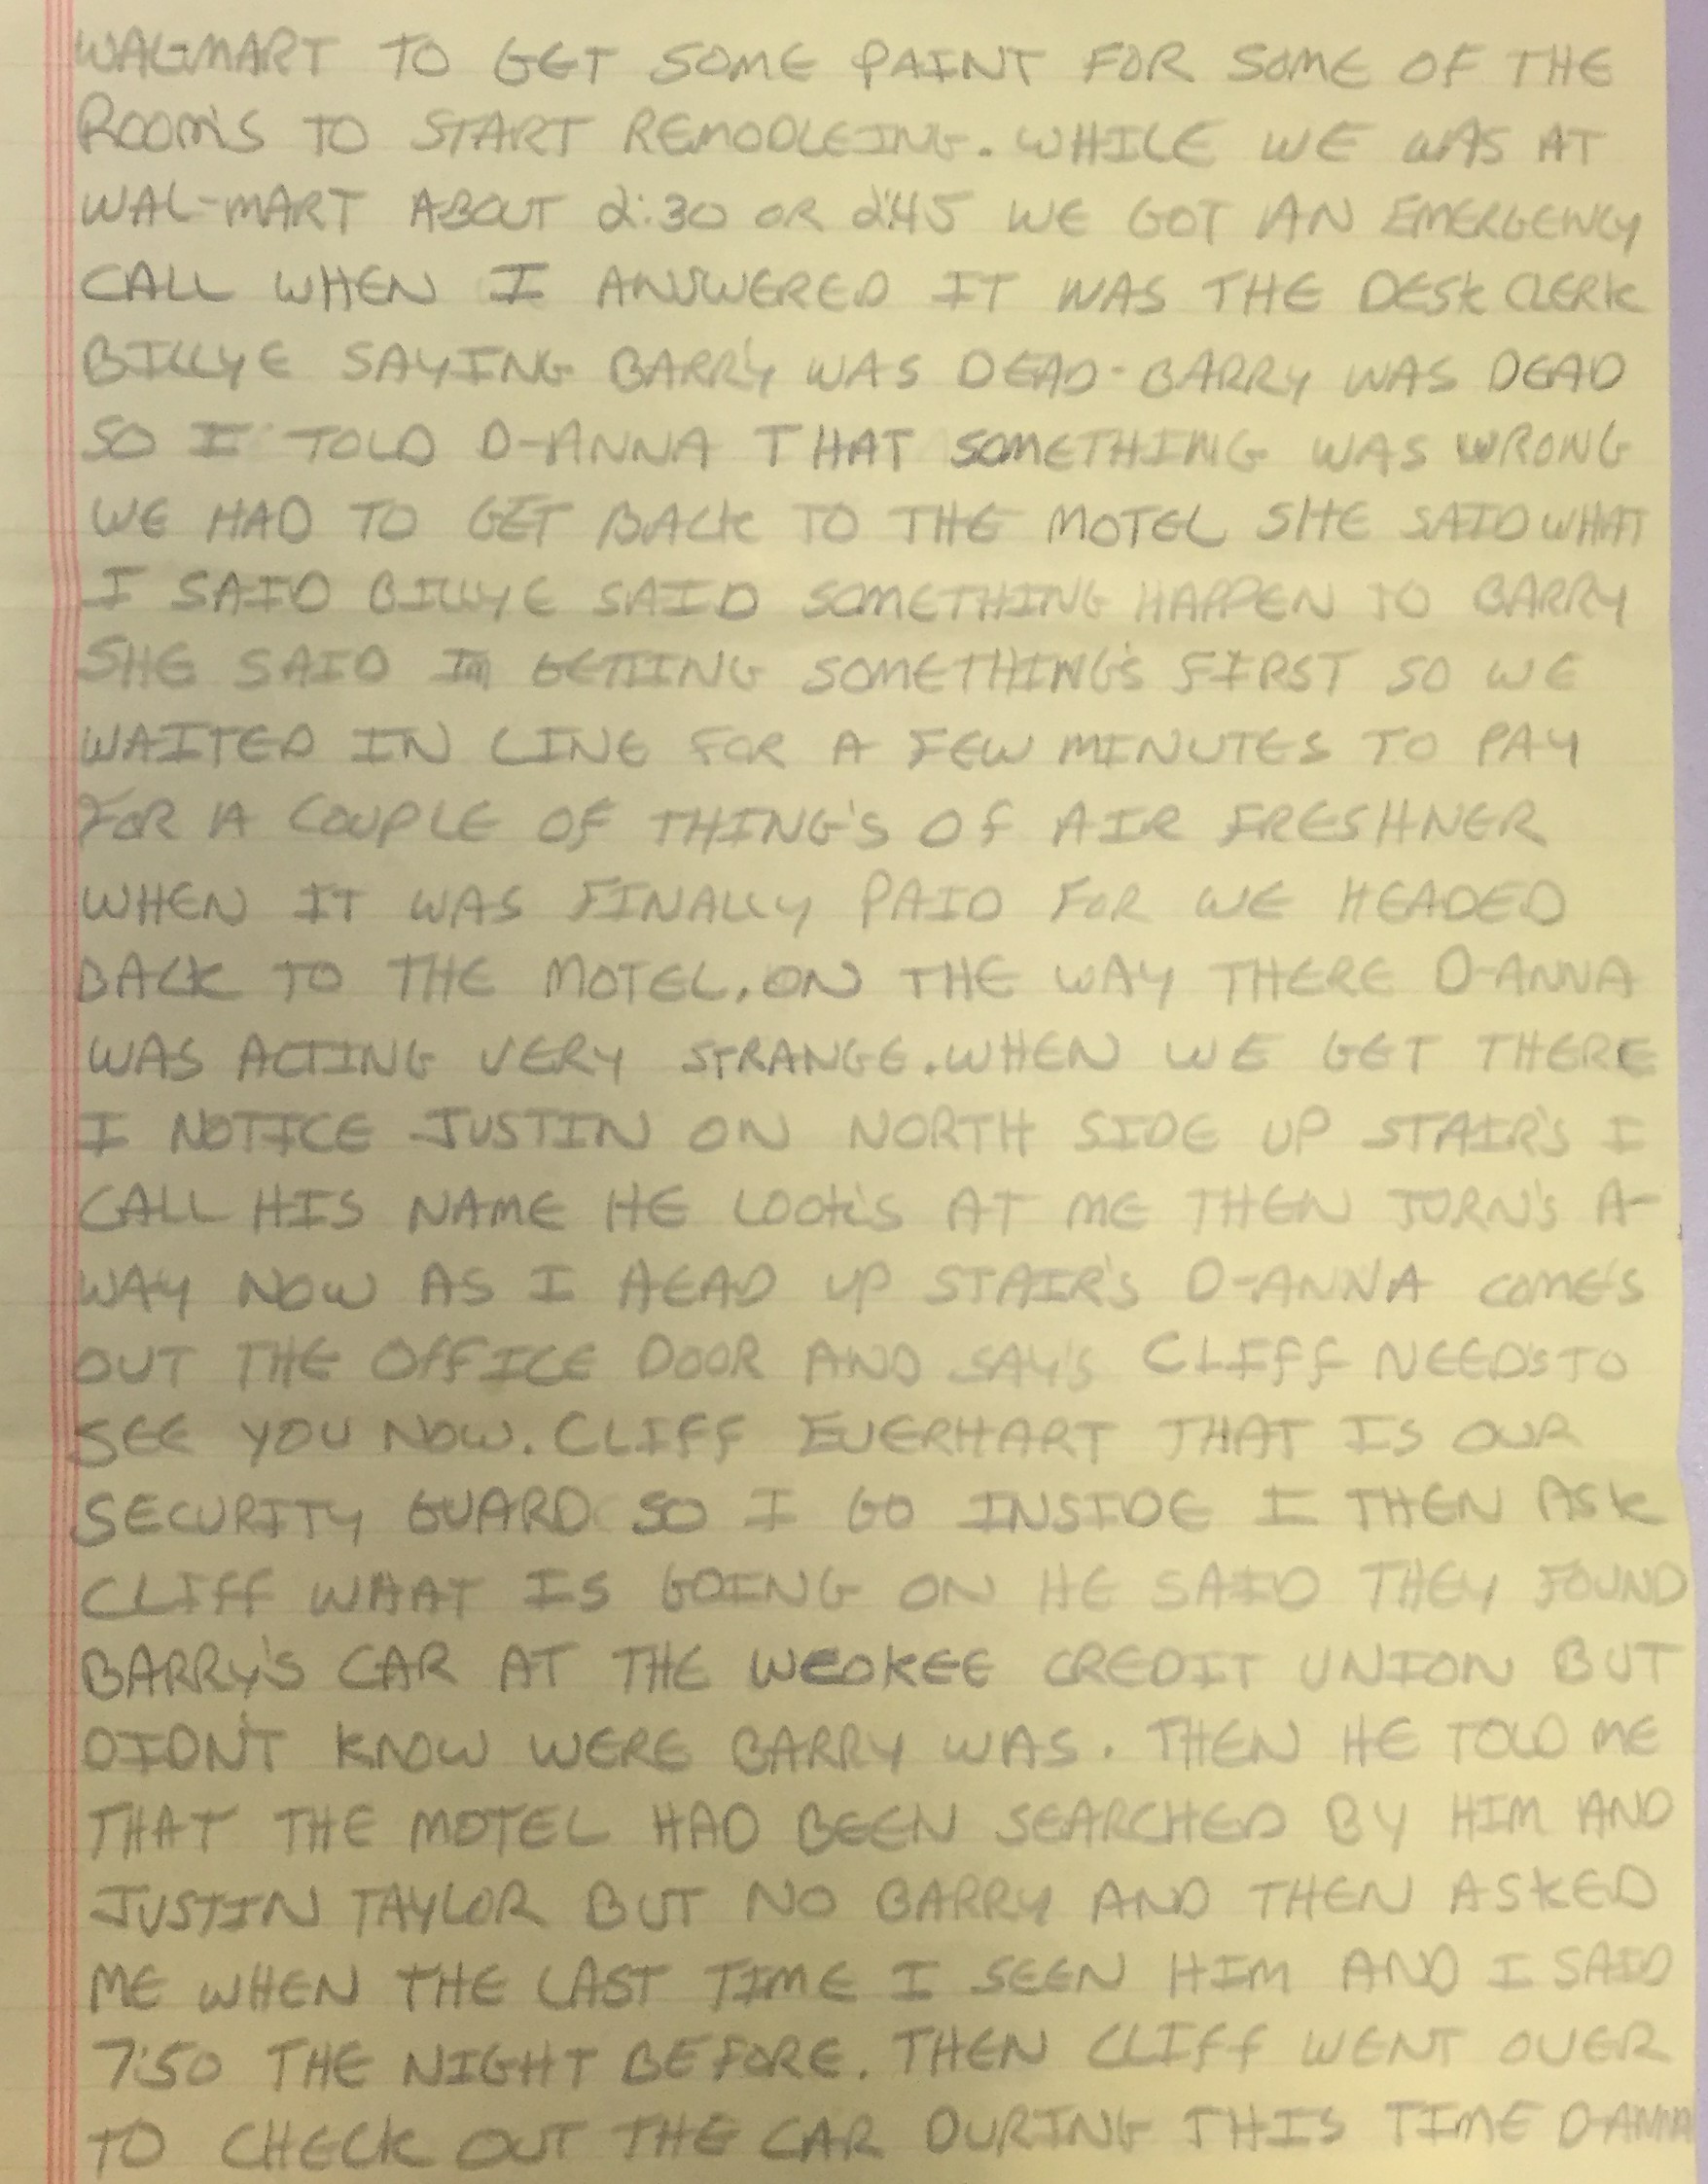 WAL-MART TO GET SOME PAINT FOR SOME OF THE
ROOM'S TO START REMODLEING. WHILE WE WAS AT
WAL-MART ABOUT 2:30 OR 2:45 WE GOT AN EMERGENCY
CALL WHEN I ANSWERED IT WAS THE DESK CLERK
BILLYE SAYING BARRY WAS DEAD - BARRY WAS DEAD
SO I TOLD D-ANNA THAT SOMETHING WAS WRONG
WE HAD TO GET BACK TO THE MOTEL SHE SAID WHAT
I SAID BILLYE SAID SOMETHING HAPPEN TO BARRY
SHE SAID Im GETTING SOMETHING'S FIRST SO WE
WAITED IN LINE FOR A FEW MINUTES TO PAY
FOR A COUPLE OF THING'S OF AIR FRESHNER
WHEN IT WAS FINALLY PAID FOR WE HEADED
BACK TO THE MOTEL. ON THE WAY THERE D-ANNA
WAS ACTING VERY STRANGE. WHEN WE GET THERE
I NOTICE JUSTIN ON NORTH SIDE UP STAIR'S I
CALL HIS NAME HE LOOK'S AT ME THEN TURN'S A-
WAY NOW AS I HEAD UP STAIR'S D-ANNA COME'S
OUT THE OFFICE DOOR AND SAY'S CLIFF NEED'S TO
SEE YOU NOW. CLIFF EVERHART THAT IS OUR
SECURITY GUARD SO I GO INSIDE I THEN ASK
CLIFF WHAT IS GOING ON HE SAID THEY FOUND
BARRY'S CAR AT THE WEOKEE CREDIT UNION BUT
DIDN'T KNOW WERE BARRY WAS. THEN HE TOLD ME
THAT THE MOTEL HAD BEEN SEARCHED BY HIM AND
JUSTIN TAYLOR BUT NO BARRY AND THEN ASKED
ME WHEN THE LAST TIME I SEEN HIM AND I SAID
7:50 THE NIGHT BEFORE. THEN CLIFF WENT OVER
TO CHECK OUT THE CAR DURING THIS TIME D-ANNA